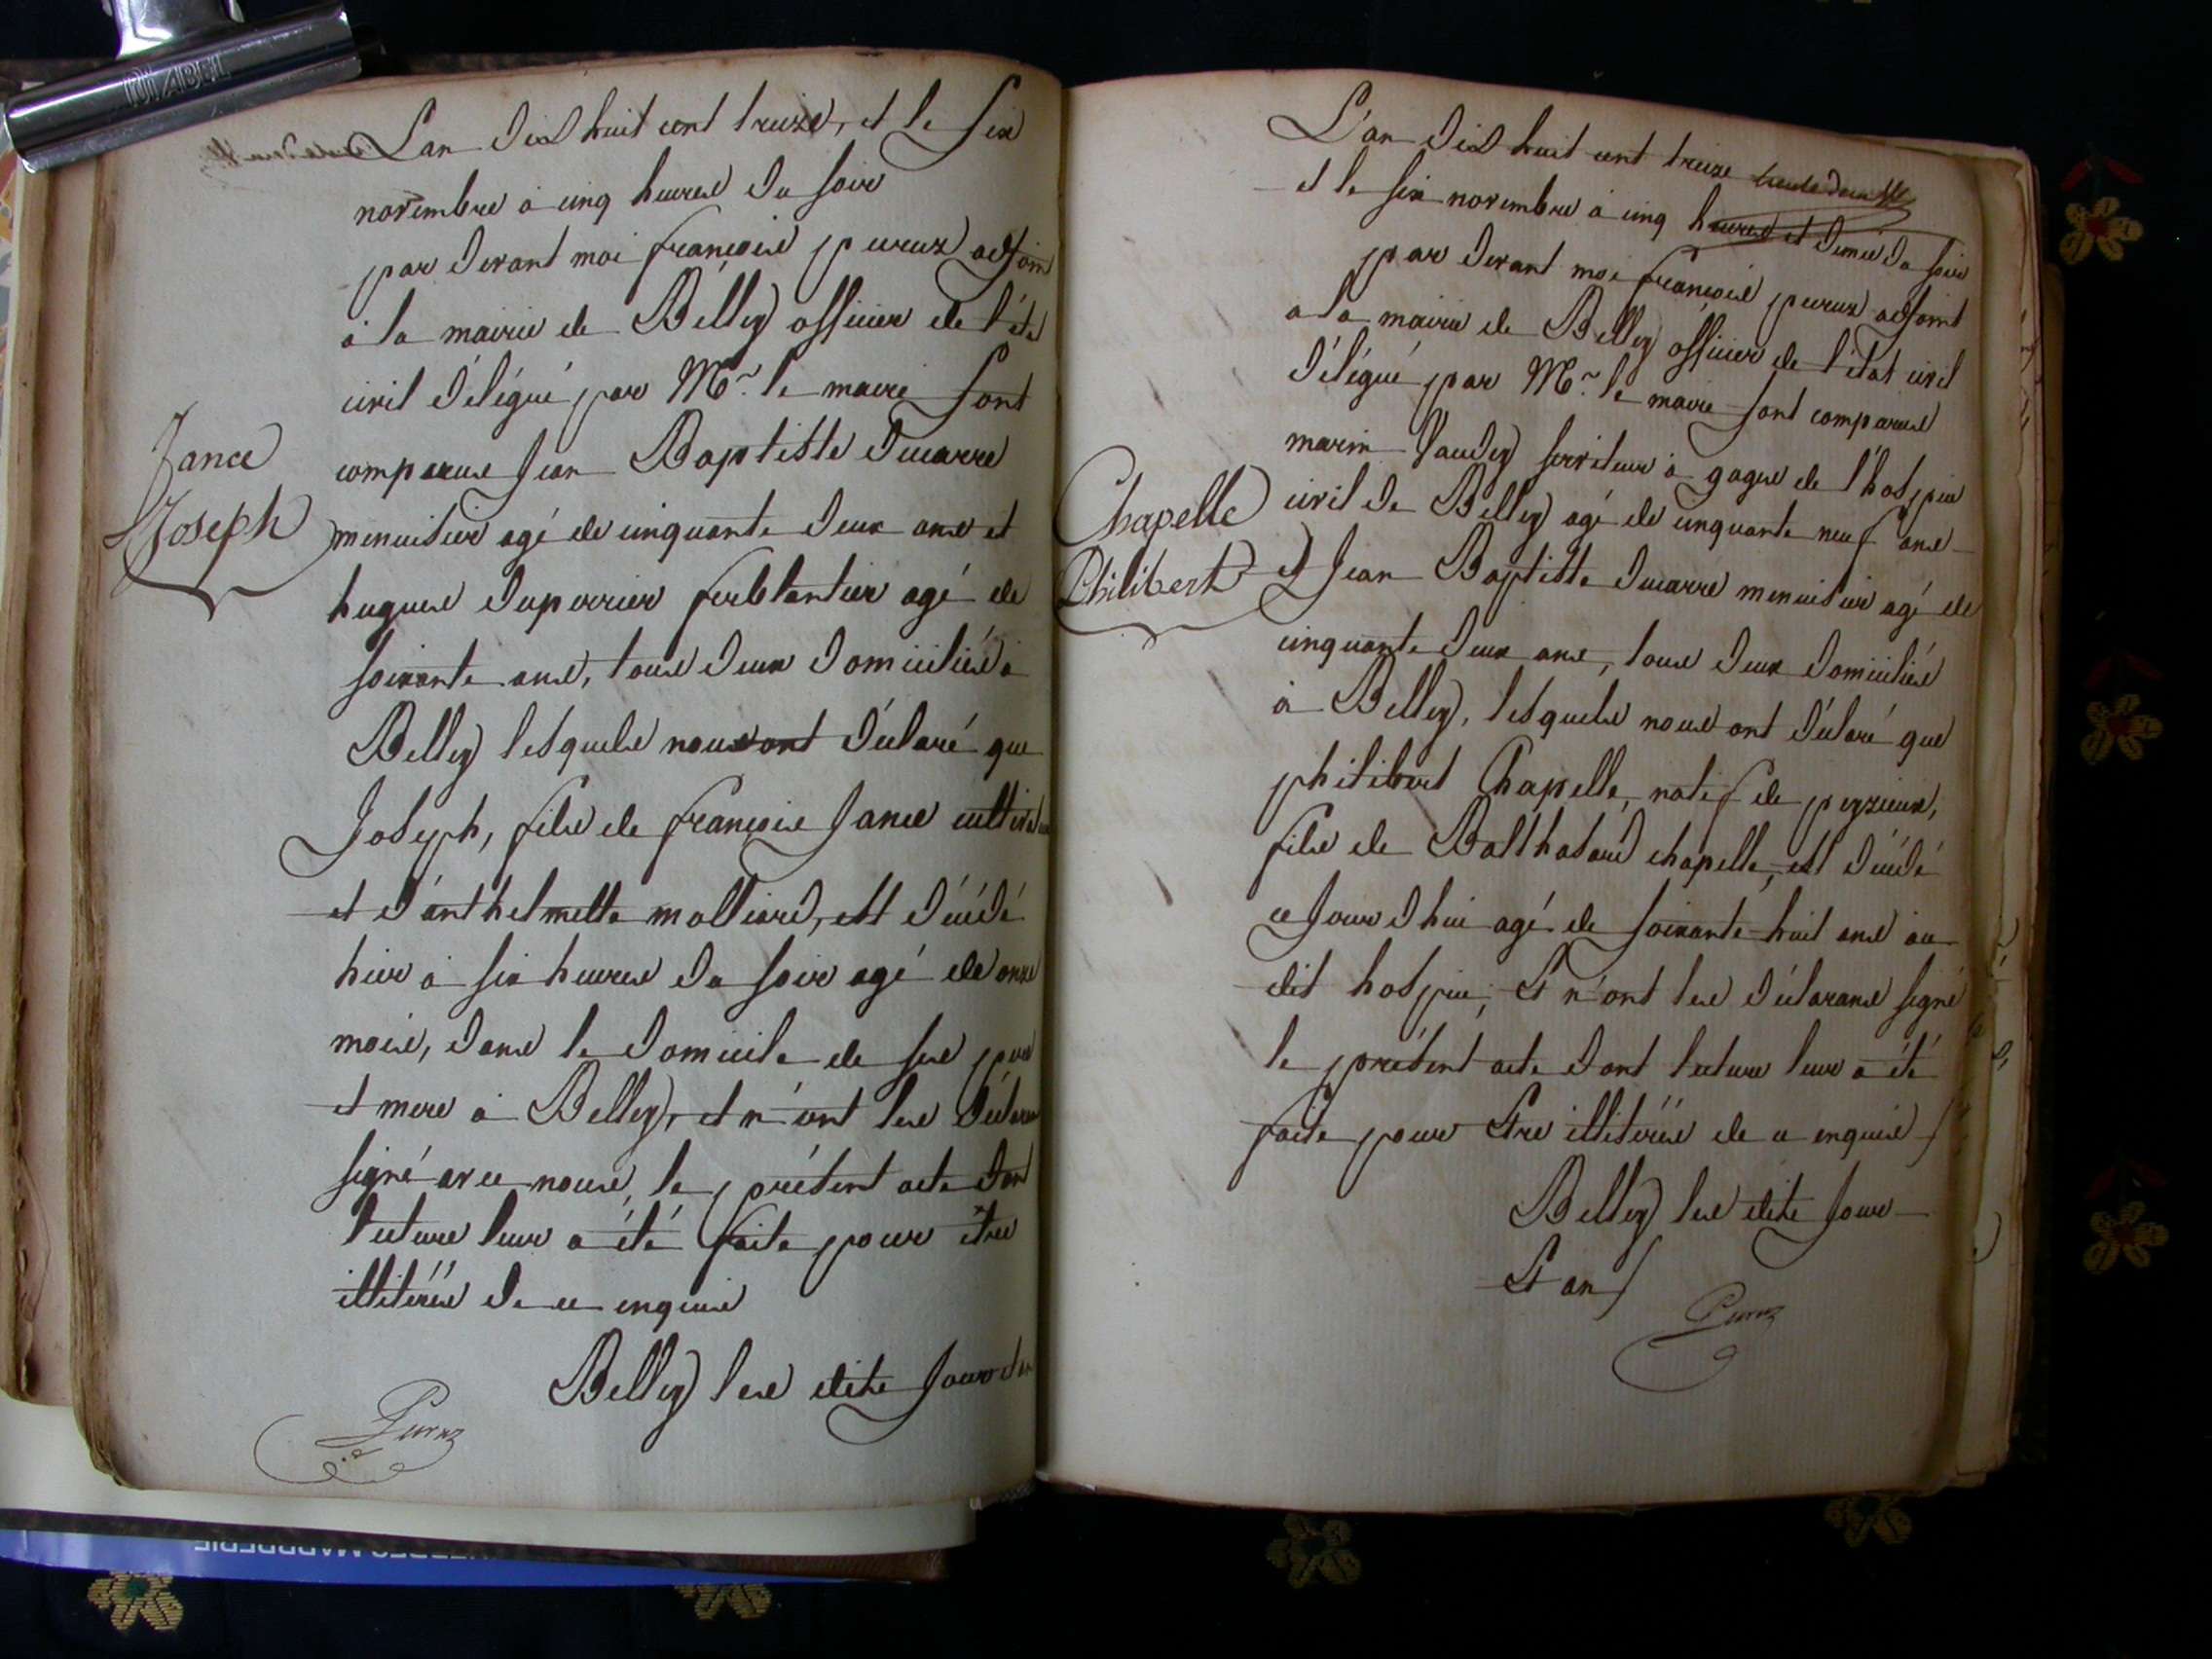 DIABEL
L'an dix huit cent treize, et le six
novembre à cinq heures du soir
par devant moi françois peruz adjoint
à la mairie de Belley officier de l'état
civil délégué par Mr. le maire sont
comparus Jean Baptiste Ducarre
menuisier agé de cinquante deux ans et
hugues duperrier ferblantier agé de
soixante ans, tous deux domiciliés à
Belley lesquels nous ont déclaré que
Joseph, fils de françois Jance cultivateur
et d'anthelmette molliard, est décédé
hier à six heures du soir agé de onze
mois, dans le domicile de ses pere
et mere à Belley, et n'ont les déclarans
signé avec nous, le présent acte dont
lecture leur a été faite pour être
illitérés de ce enquis
Belley les dits jour et an
Jance
Joseph
L'an dix huit cent treize
et le six novembre à cinq heures et demie du soir
par devant moi françois peruz adjoint
a la mairie de Belley officier de l'état civil
délégué par Mr. le maire sont comparus
marin Vaudey serviteur à gages de l'hospice
civil de Belley agé de cinquante neuf ans
et Jean Baptiste Ducarre menuisier agé de
cinquante deux ans, tous deux domiciliés
à Belley, lesquels nous ont déclaré que
philibert Chapelle, natif de peyzieux,
fils de Balthasard chapelle, est décédé
ce jourd'hui agé de soixante-huit ans au
dit hospice; Et n'ont les déclarans signé
le présent acte dont lecture leur a été
faite pour Etre illitérés de ce enquis
Belley les dits jour
Et an
Chapelle
Philibert